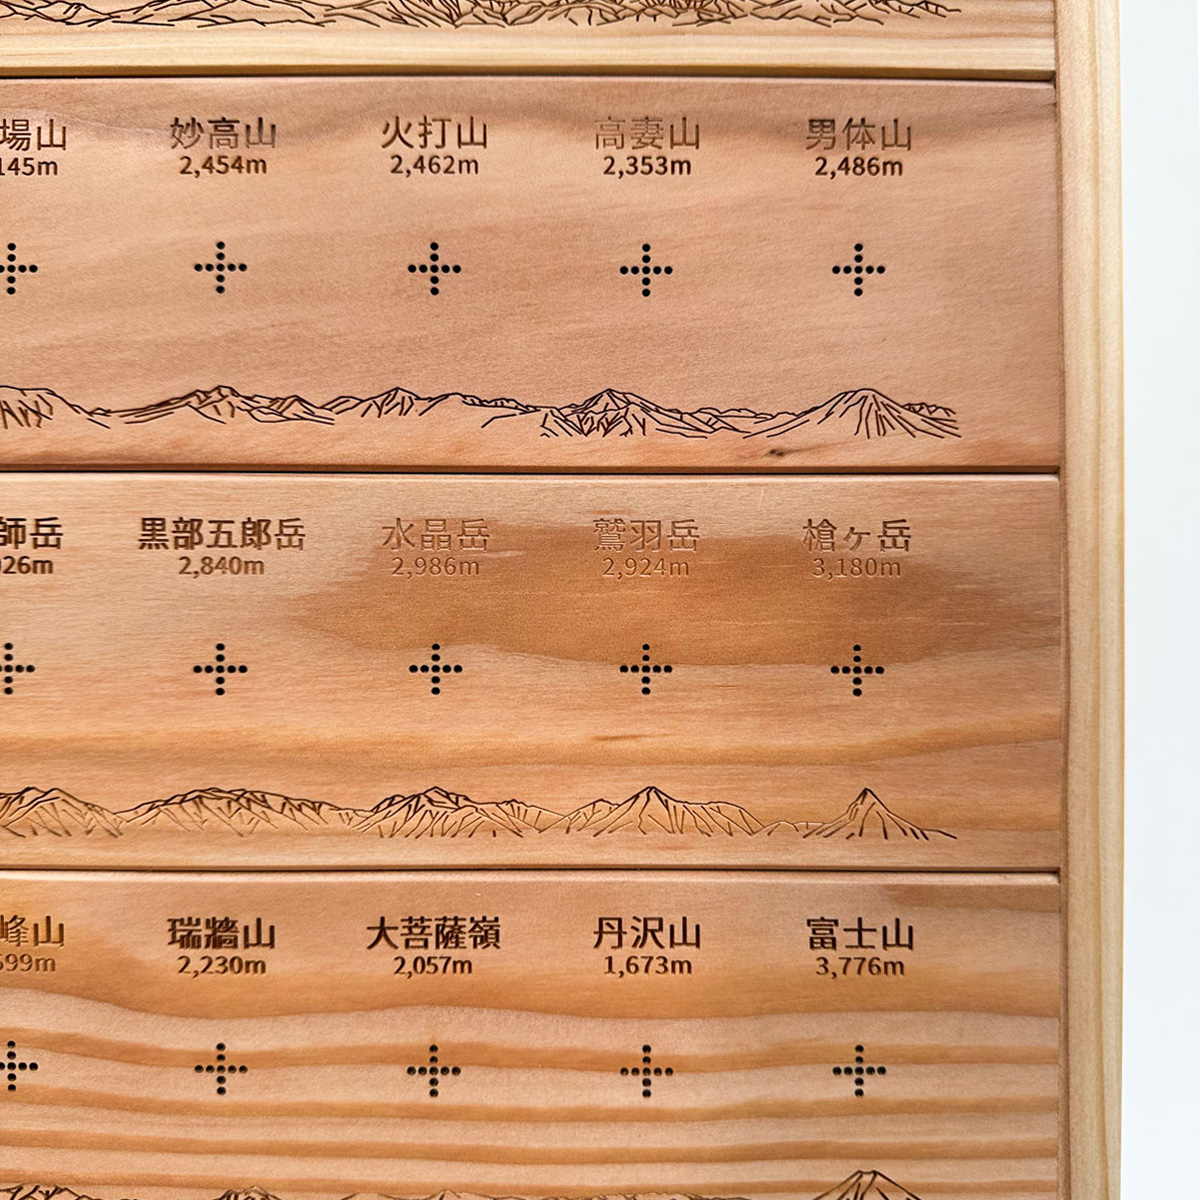 場山 妙高山 火打山 高妻山 男体山
145m 2,454m 2,462m 2,353m 2,486m
師岳 黒部五郎岳 水晶岳 鷲羽岳 槍ヶ岳
926m 2,840m 2,986m 2,924m 3,180m
峰山 瑞牆山 大菩薩嶺 丹沢山 富士山
599m 2,230m 2,057m 1,673m 3,776m